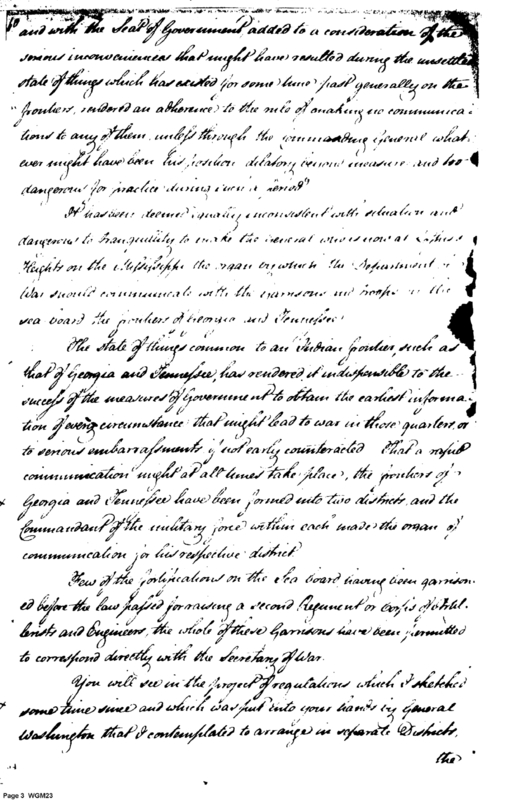 and with the Seat of Government added to a consideration of the
serious inconveniences that might have resulted during the unsettled
state of things which has existed for some time past generally on the
frontiers, rendered an adherence to the rule of making no communica
tions to any of them, unless through the commanding General what
ever might have been his position dilatory measure and too
dangerous for practice during such a period"
It has been deemed equally inconsistent with situation and
dangerous to tranquility to make the General who is now at
Heights on the Mississippi the organ by which the Department of
War should communicate with the garrisons and troops on the
sea board the frontiers of Georgia and Tennessee
The state of things common to an Indian frontier such as
that of Georgia and Tennessee, has rendered it indispensible to the
success of the measures of Government to obtain the earliest informa
tion of every circumstance that might lead to war in those quarters, or
to serious embarrassments if not early counteracted That a rapid
communication might at all times take place, the frontiers of
Georgia and Tennessee have been formed into two districts, and the
Commandant of the military force within each made the organ of
communication for his respective district
Few of the fortifications on the Sea board, having been garrison
ed before the law passed for raising a second Regiment or Corps of Artil
lerists and Engineers, the whole of these Garrisons have been permitted
to correspond directly with the Secretary of War.
You will see in the project of regulations which I sketched
some time since and which was put into your hands by General
Washington that I contemplated to arrange in separate Districts,
the
Page 3 WGM23